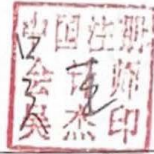 中国注册
会计师
吴杰印